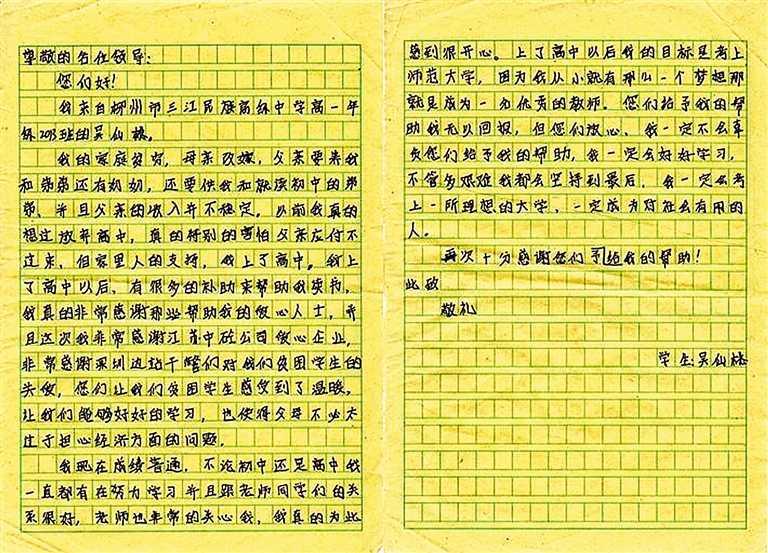 尊敬的各位领导：
您们好！
我来自柳州市三江民族高级中学高一年
级2013班的吴仙
我的家庭贫穷，母亲改嫁，父亲要养我
和弟弟还有奶奶，还要供我和就读初中的弟
弟、并且父亲的收入并不稳定，以前我真的
想过放弃高中，真的特别的害怕父亲应付不
过来，但家里人的支持，我上了高中。我上
了高中以后，有很多的补助来帮助我读书，
我真的非常感谢那些帮助我的爱心人士，并
且这次我非常感谢江 中 公司爱心企业，
非常感谢深圳边站干警们对我们贫困学生的
关爱，您们让我们贫困学生感受到了温暖，
让我们能够好好的学习，也使得父母不必太
过于担心经济方面的问题。
我现在成绩普通，不论初中还是高中我
一直都有在努力学习并且跟老师同学们的关
系很好，老师也非常的关心我，我真的为此
感到很开心。上了高中以后我的目标是考上
师范大学，因为我从小就有那么一个梦想那
就是成为一名优秀的教师。您们给予我的帮
助我无以回报，但您们放心，我一定不会辜
负您们给予我的帮助，我一定会好好学习，
不管多艰难我都会坚持到最后，我一定会考
上一所理想的大学，一定成为对社会有用的
人。
再次十分感谢您们予给我的帮助！
此致
敬礼
学生：吴仙